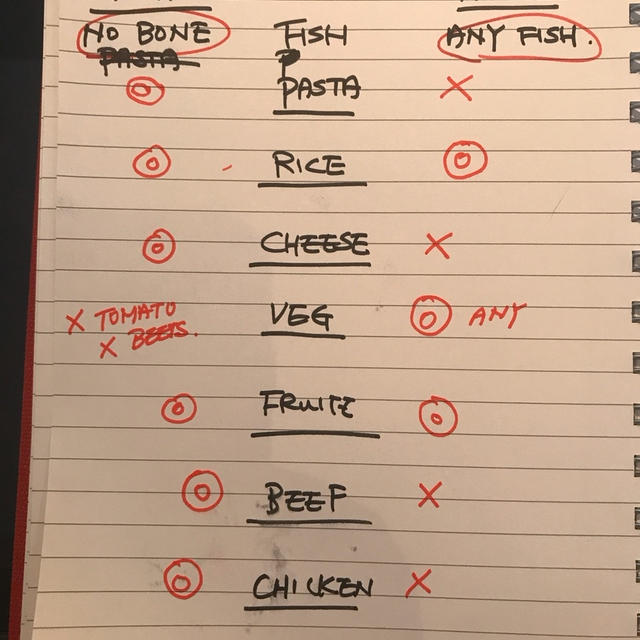 NO BONE FISH ANY FISH.
PASTA P
PASTA X
RICE
CHEESE X
X TOMATO VEG ANY
X BEETS.
FRUITE
BEEF X
CHICKEN X